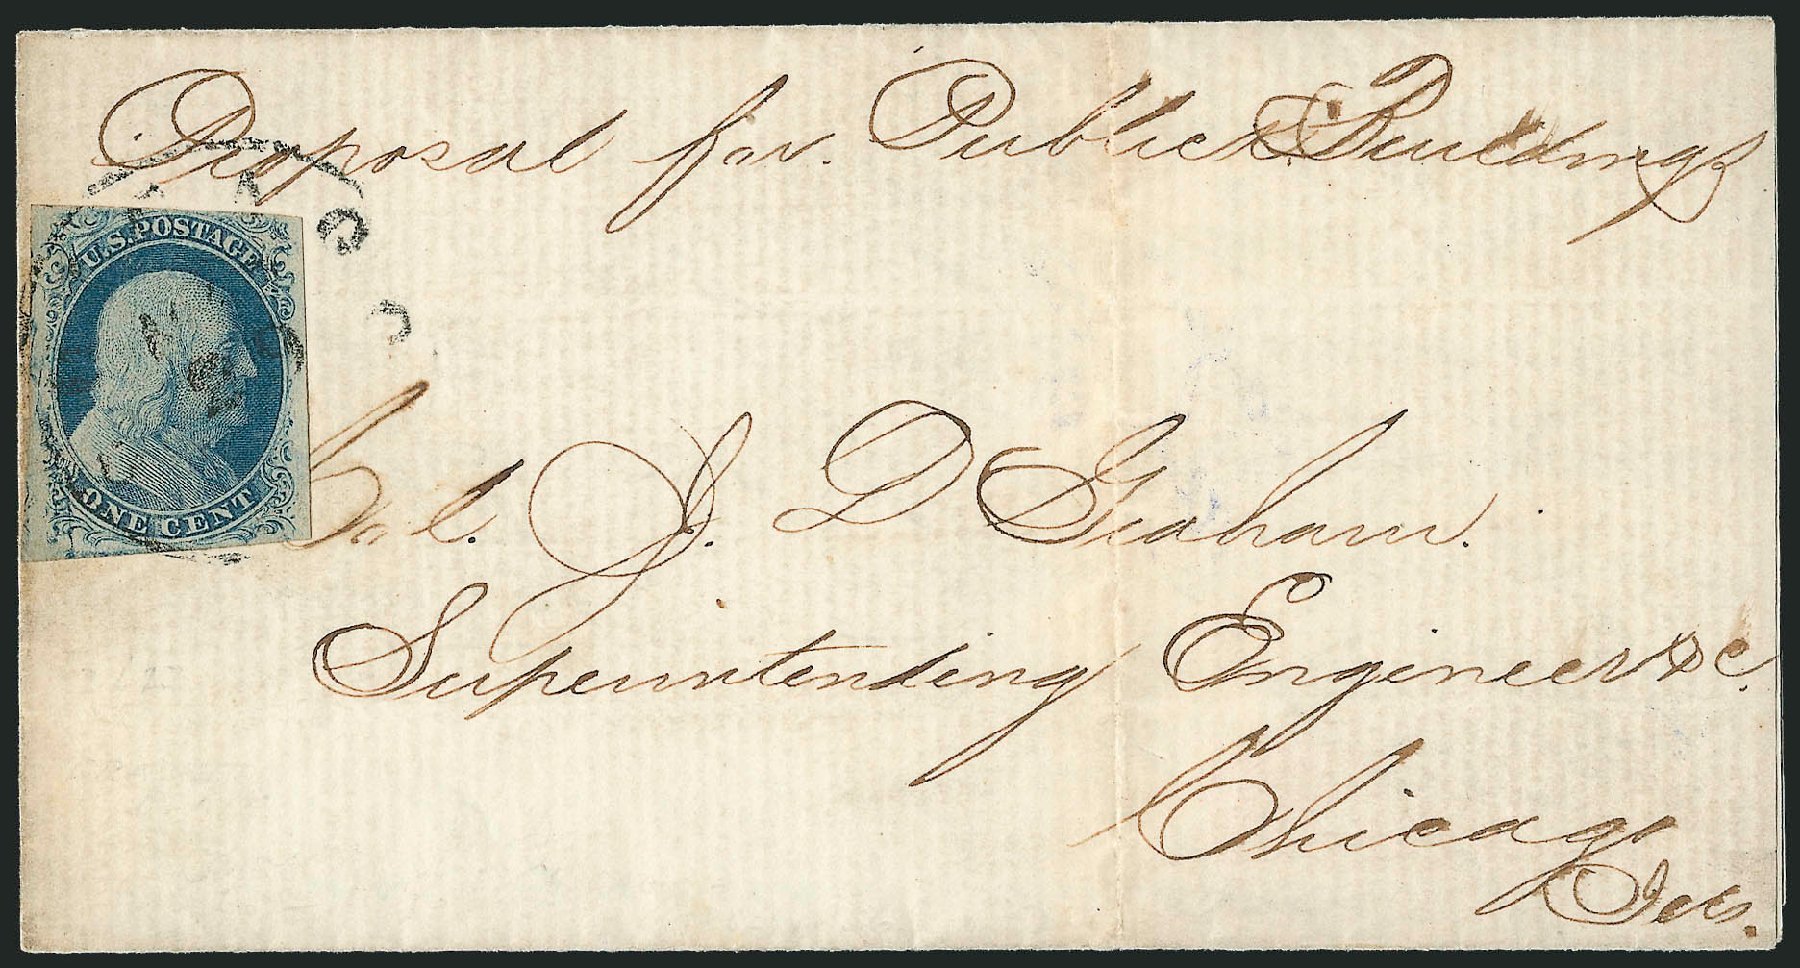 Proposal for Public Buildings
U.S. POSTAGE
ONE CENT
Col. J. D Graham.
Superintending Engineer &c.
Chicago
Ills.